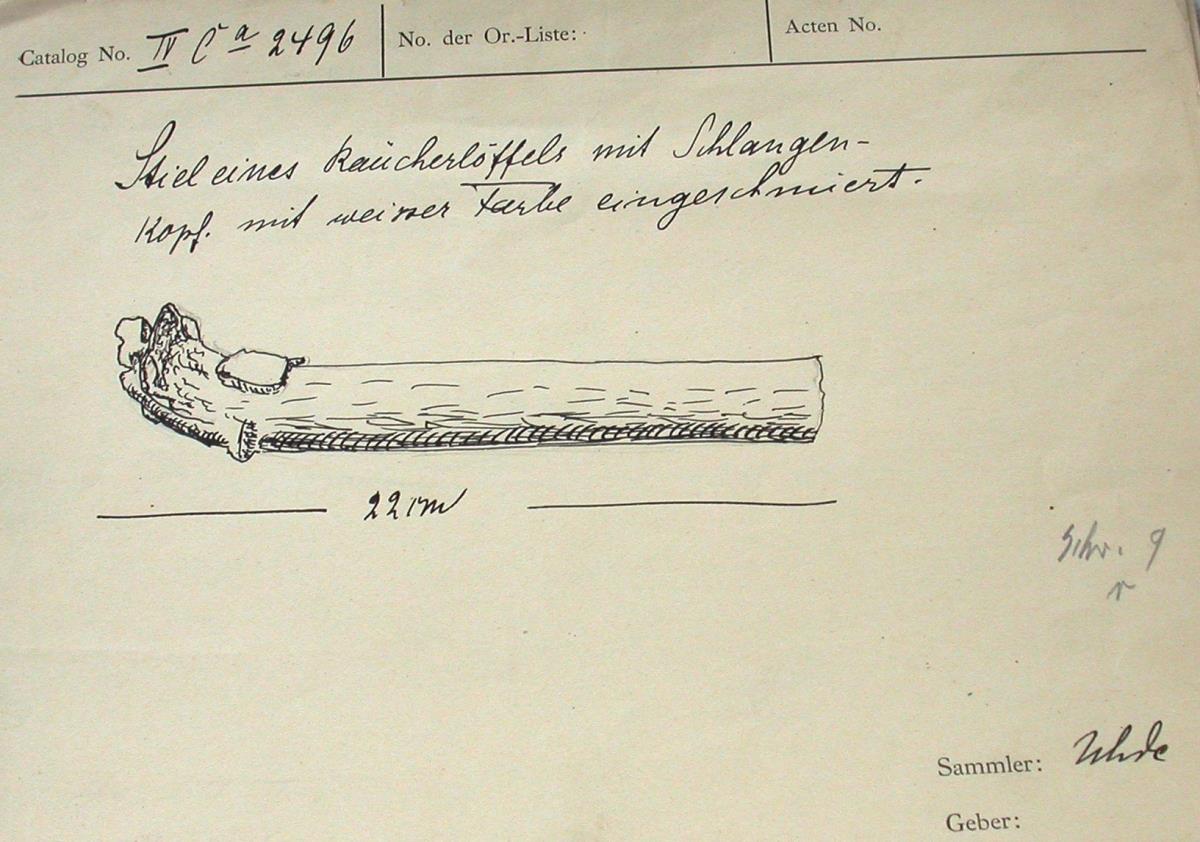 Catalog No. IV Ca 2496 No. der Or.-Liste: Acten No.
Stiel eines Räucherlöffels mit Schlangen-
kopf. mit weisser Farbe eingeschmiert.
22 cm
Schr. 9
r
Sammler: Uhde
Geber: